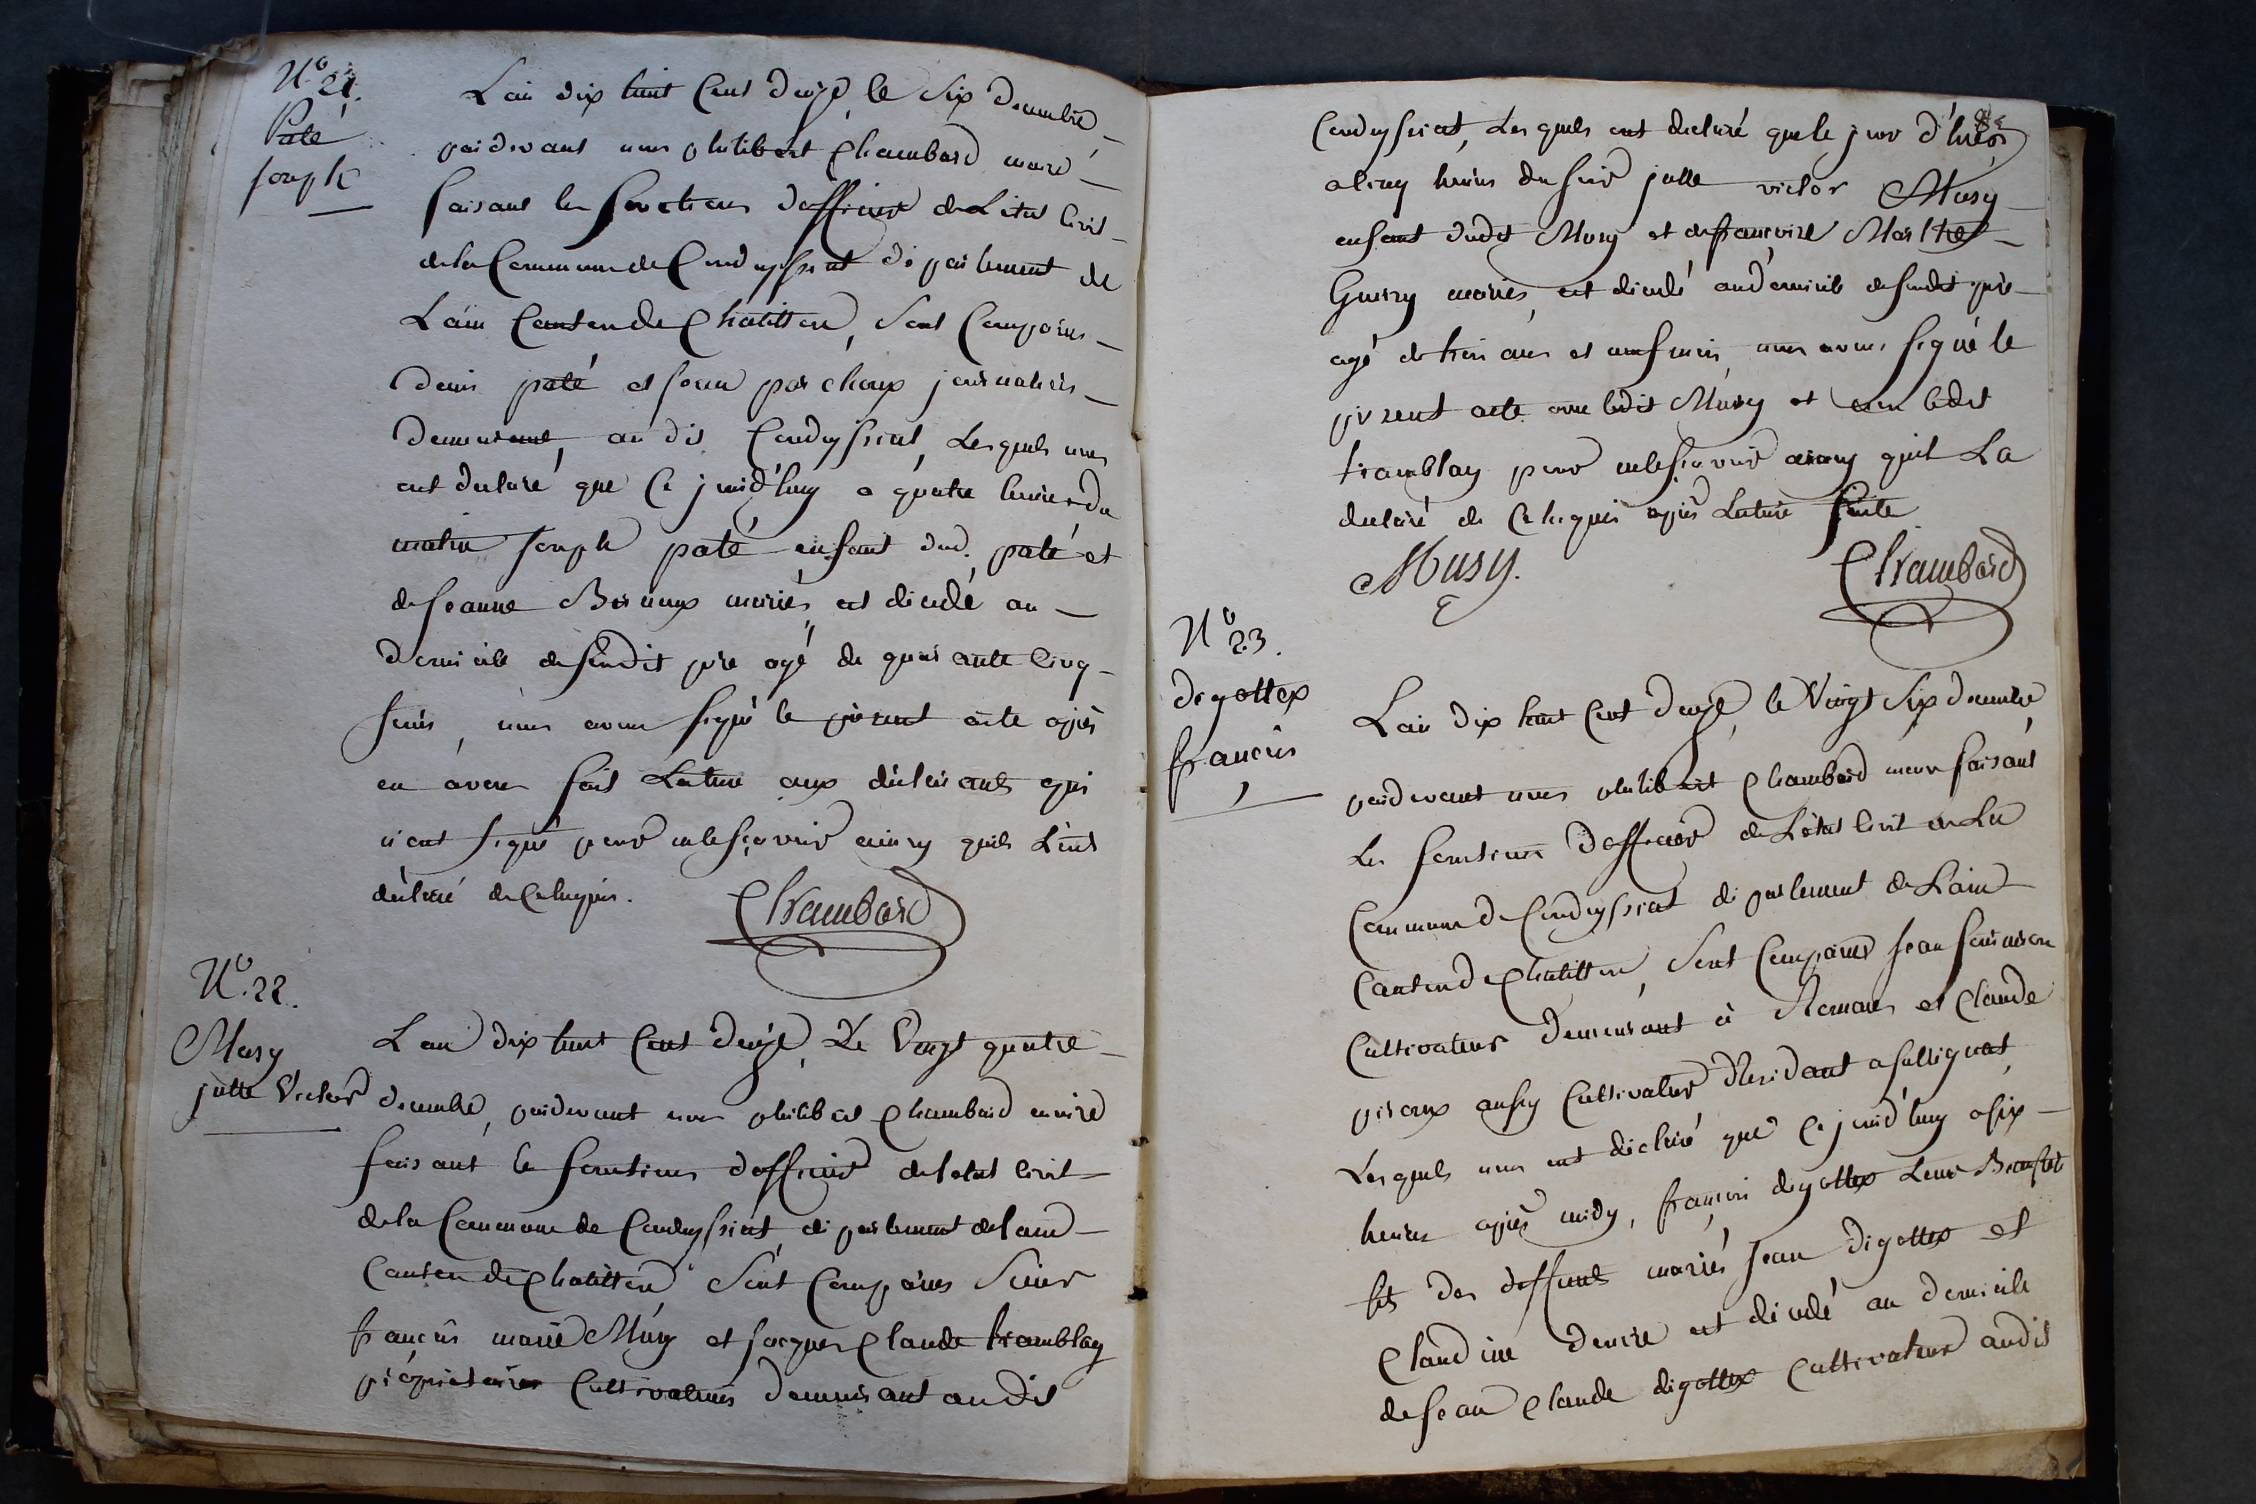 N.° 21.
Paté
Joseph
Lan dix huit Cent douze le Six decembre
pardevant nous philibert Chambard maire
faisant les fonctions dofficier de Létat Civil
de la Commune de Condeyssiat département de
Lain Canton de Chatillon, Sont Comparus
denis paté et jean pardevant nous
demeurant audit Condeyssiat, Lesquels nous
ont declaré que Ce jourd'huy a quatre heures du
matin Joseph paté enfant dud. paté et
de jeanne mariés, est décédé au
domicile desondit pere agé de quarante cinq
jours, nous avons signé le présent acte après
en avoir fait Lecture aux déclarants qui
n'ont signé pour nelesçavoir ainsy quils Lont
déclaré de Cerequis.
Chambard
N.° 22.
Musy
julle Victor
Lan dix huit Cent douze, Le Vingt quatre
decembre, pardevant nous philibert Chambard maire
faisant les fonctions dofficier deletat Civil
de la Commune de Condeyssiat, département delain
Canton de Chatillon Sont Comparus Sieur
francois marie Musy et jacques Claude tramblay
propriétaires Cultivateurs demeurant audit
Condeyssiat, Lesquels ont declaré que le jour d'hier
a cinq heures du soir julle victor Musy
enfant dudit Musy et defrancoise Marthe
Guerry mariés, est décédé audomicile desondit père
agé de trois ans et neuf mois, nous avons signé le
present acte avec ledit Musy et non ledit
tramblay pour nelesçavoir ainsy quil La
declaré de Ce requis après Lecture faite
Musy. Chambard
N.° 23.
degottex
francois
Lan dix huit Cent douze, le Vingt Six decembre
pardevant nous philibert Chambard maire faisant
Les fonctions dofficier de Létat Civil de La
Commune de Condeyssiat département de Lain
Canton de Chatillon, Sont Comparus Jean
Cultivateur demeurant à Romans et Claude
piroux aussy Cultivateur Residant a sulignat,
Lesquels nous ont déclaré que Ce jourd'huy a six
heures après midy, francois degottex Leur Beaufrere
fils des deffunts mariés Jean degottex et
Claudine est décédé au domicile
de Jean Claude degottex Cultivateur audit